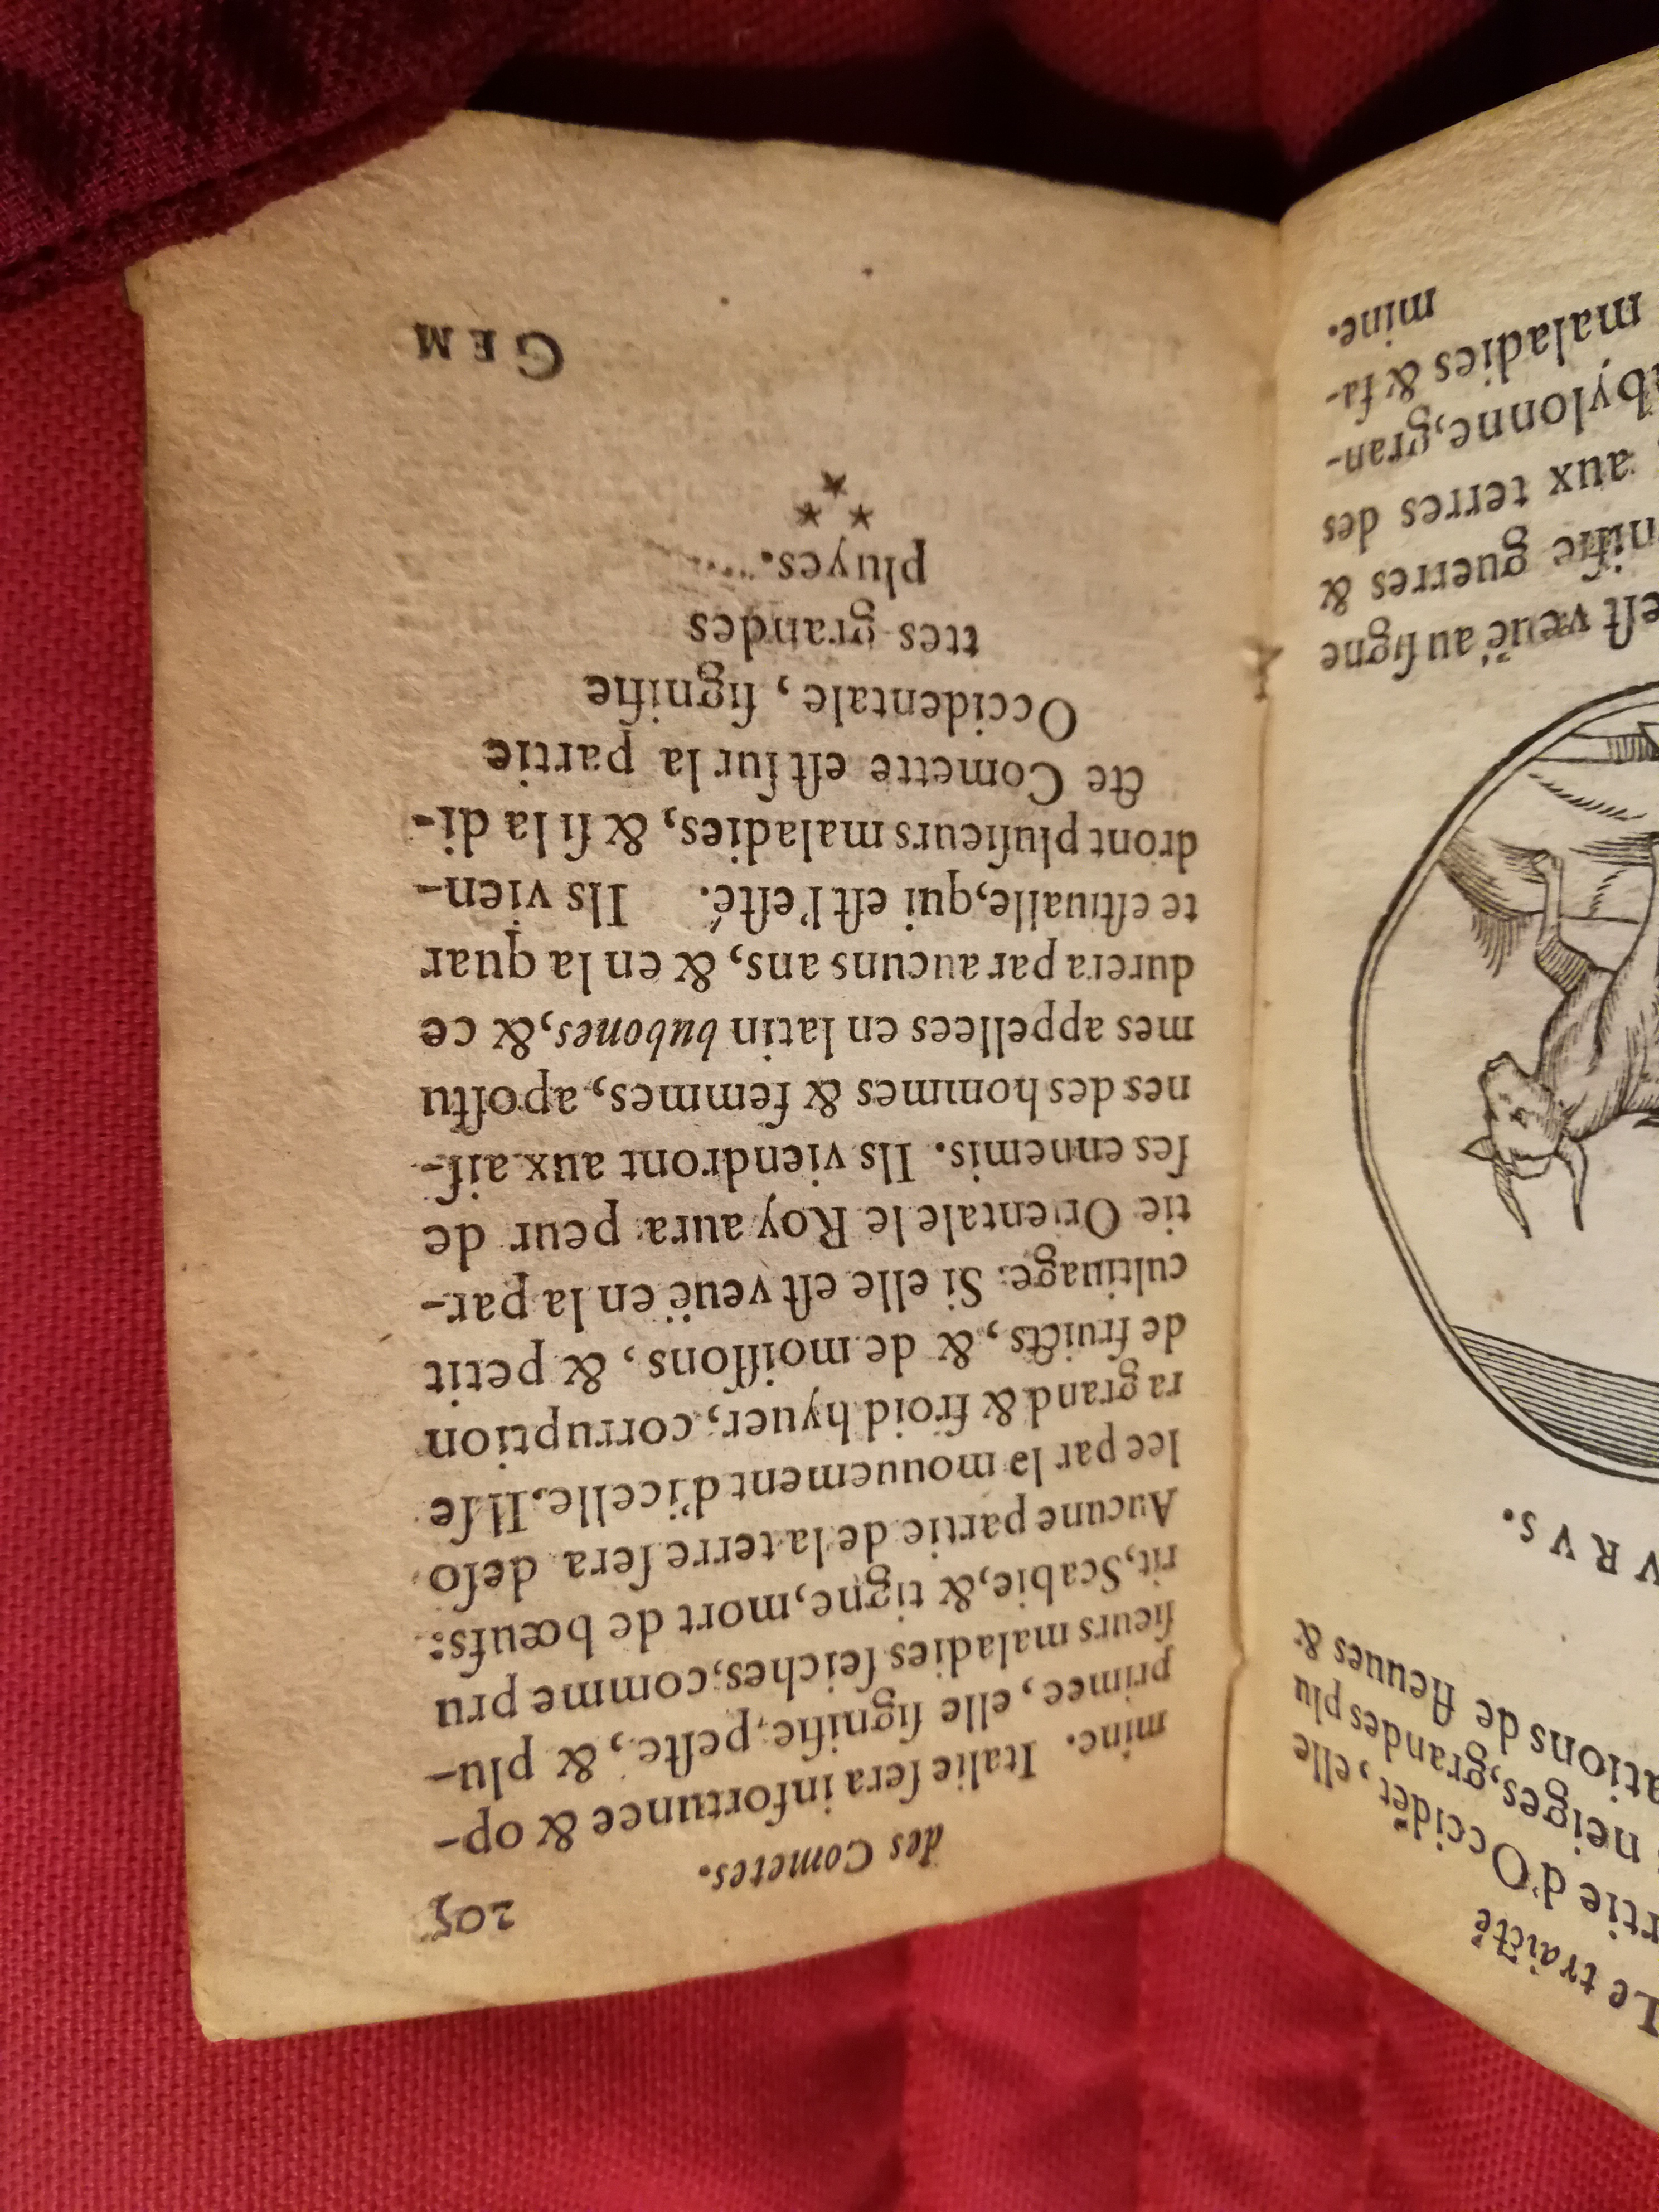 Le traicté
rtie d'Occidēt, elle
neiges, grandes plu
ations de fleuues &
V R V S.
eſt veuë au ſigne
nifie guerres &
aux terres des
bylonne, gran-
maladies & fa-
mine.
des Cometes. 205
mine. Italie ſera infortunee & op-
primee, elle ſignifie, peſte, & plu-
ſieurs maladies ſeiches, comme pru
rit, Scabie, & tigne, mort de bœufs:
Aucune partie de la terre ſera deſo
lee par le mouuement d'icelle. Il ſe
ra grand & froid hyuer, corruption
de fruicts, & de moiſſons, & petit
cultiuage: Si elle eſt veuë en la par-
tie Orientale le Roy aura peur de
ſes ennemis. Ils viendront aux aiſ-
nes des hommes & femmes, apoſtu
mes appellees en latin bubones, & ce
durera par aucuns ans, & en la quar
te eſtiualle, qui eſt l'eſté. Ils vien-
dront pluſieurs maladies, & ſi la di-
cte Comette eſt ſur la partie
Occidentale, ſignifie
ttes grandes
pluyes.
* *
*
GEM